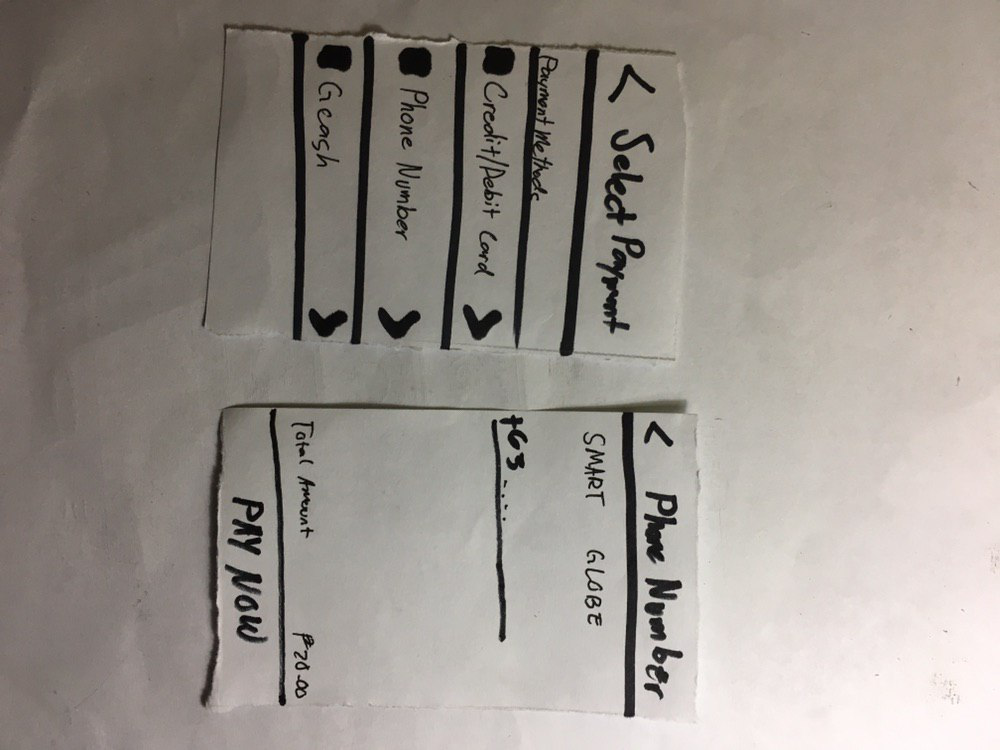 < Select Payment
Payment Methods
Credit/Debit Card >
Phone Number >
Gcash >
< Phone Number
SMART GLOBE
+63 -....
Total Amount ₱20.00
PAY NOW